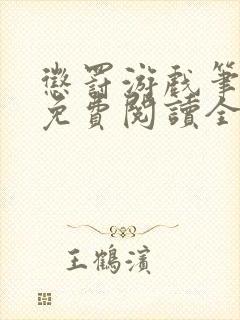 懲罰游戏筆
免費閱讀全
王鶴濱